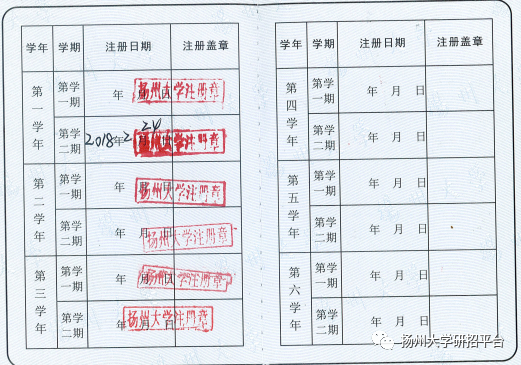 学年 学期 注册日期 注册盖章
第一学年 第学一期 年 月 日 扬州大学注册章
第学二期 2018年2月24日 扬州大学注册章
第二学年 第学一期 年 月 日 扬州大学注册章
第学二期 年 月 日 扬州大学注册章
第三学年 第学一期 年 月 日 扬州大学注册章
第学二期 年 月 日 扬州大学注册章
学年 学期 注册日期 注册盖章
第四学年 第学一期 年 月 日
第学二期 年 月 日
第五学年 第学一期 年 月 日
第学二期 年 月 日
第六学年 第学一期 年 月 日
第学二期 年 月 日
扬州大学研招平台